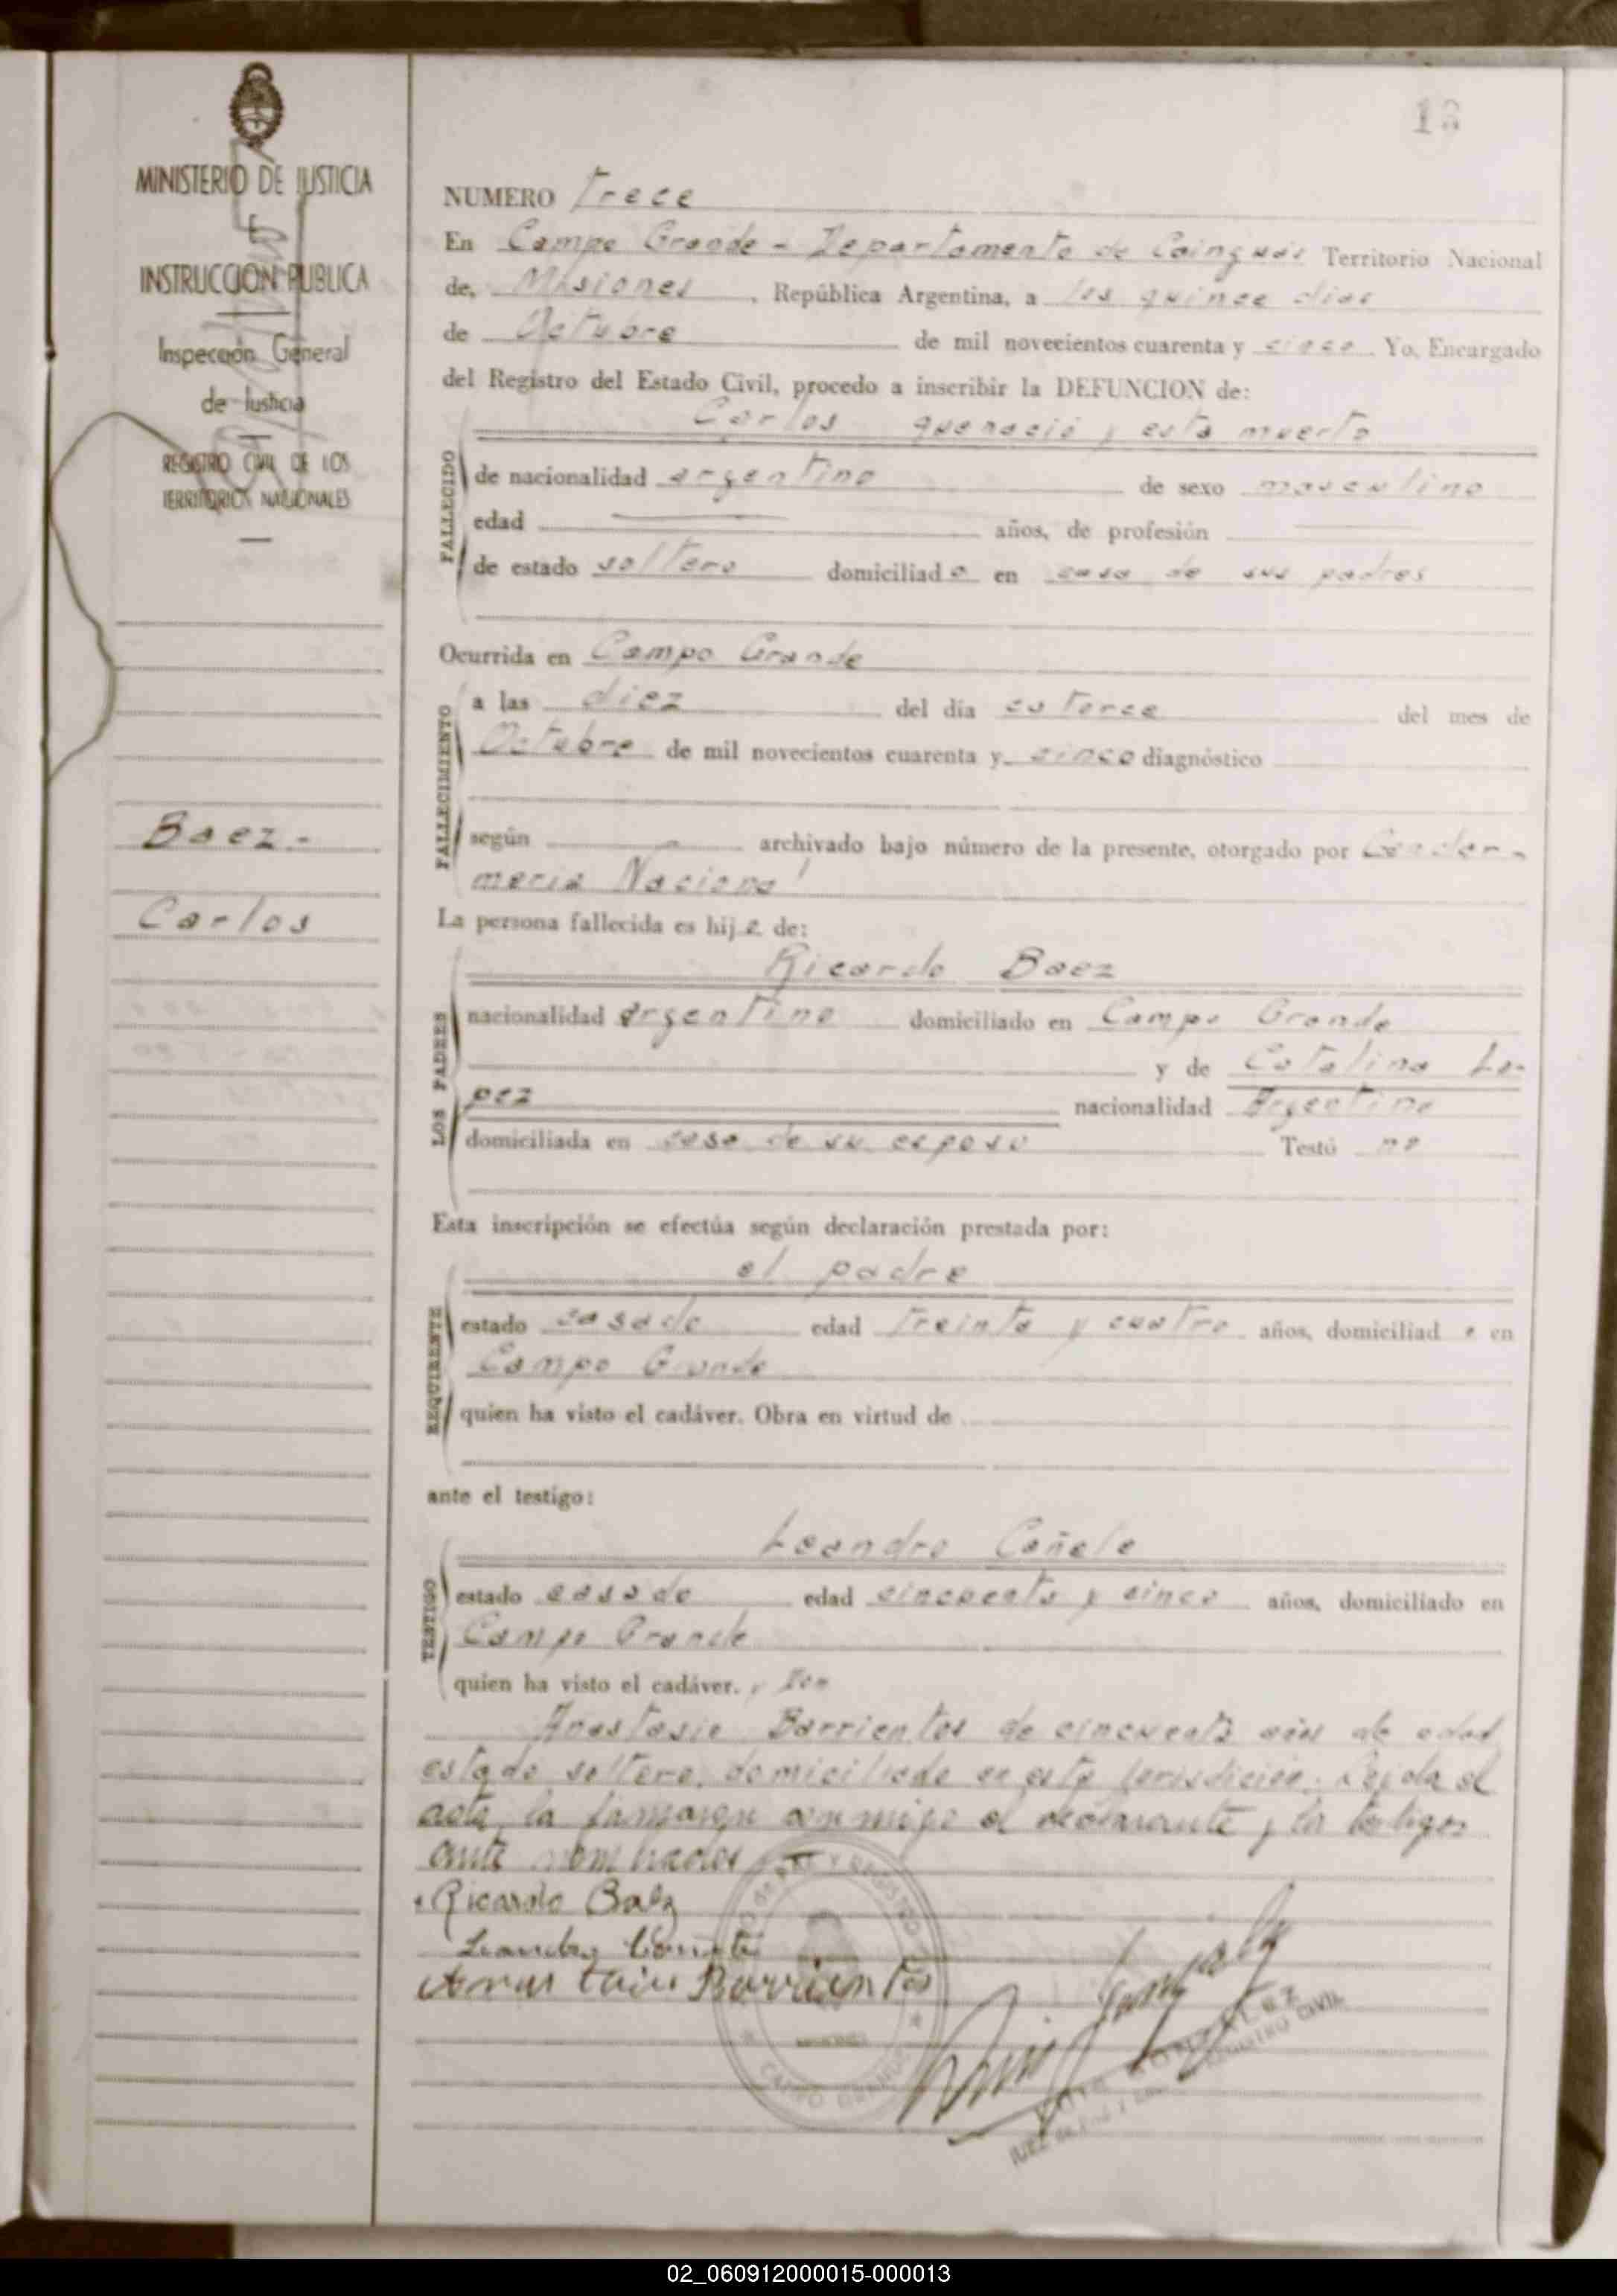 MINISTERIO DE JUSTICIA
INSTRUCCION PUBLICA
Inspección General
de Justicia
REGISTRO CIVIL DE LOS
TERRITORIOS NACIONALES
Baez-
Carlos
13
NUMERO Trece
En Campo Grande - Departamento de Cainguás Territorio Nacional
de Misiones, República Argentina, a los quince dias
de Octubre de mil novecientos cuarenta y cinco Yo, Encargado
del Registro del Estado Civil, procedo a inscribir la DEFUNCION de:
Carlos que nació y esta muerto
FALLECIDO
de nacionalidad argentino de sexo masculino
edad años, de profesión
de estado soltero domiciliado en casa de sus padres
Ocurrida en Campo Grande
FALLECIMIENTO
a las diez del día catorce del mes de
Octubre de mil novecientos cuarenta y cinco diagnóstico
según archivado bajo número de la presente, otorgado por Gendar-
meria Nacional
La persona fallecida es hijo de:
Ricardo Baez
LOS PADRES
nacionalidad argentino domiciliado en Campo Grande
y de Catalina Lo-
pez nacionalidad Argentina
domiciliada en casa de su esposo Testó no
Esta inscripción se efectúa según declaración prestada por:
el padre
REQUIRENTE
estado casado edad treinta y cuatro años, domiciliado en
Campo Grande
quien ha visto el cadáver. Obra en virtud de
ante el testigo:
Leandro Cañete
TESTIGO
estado casado edad cincuenta y cinco años, domiciliado en
Campo Grande
quien ha visto el cadáver. y Don
Anastasio Barrientos de cincuenta años de edad
estado soltero, domiciliado en esta jurisdicion. Leida el
acta, la firmaron conmigo el declarante y los testigos
ante nombrados
Ricardo Baez
Leandro Cañete
Anastacio Barrientos
CAMPO GRANDE
GONZALEZ
JUEZ DE PAZ Y ENC. REGISTRO CIVIL
02_060912000015-000013